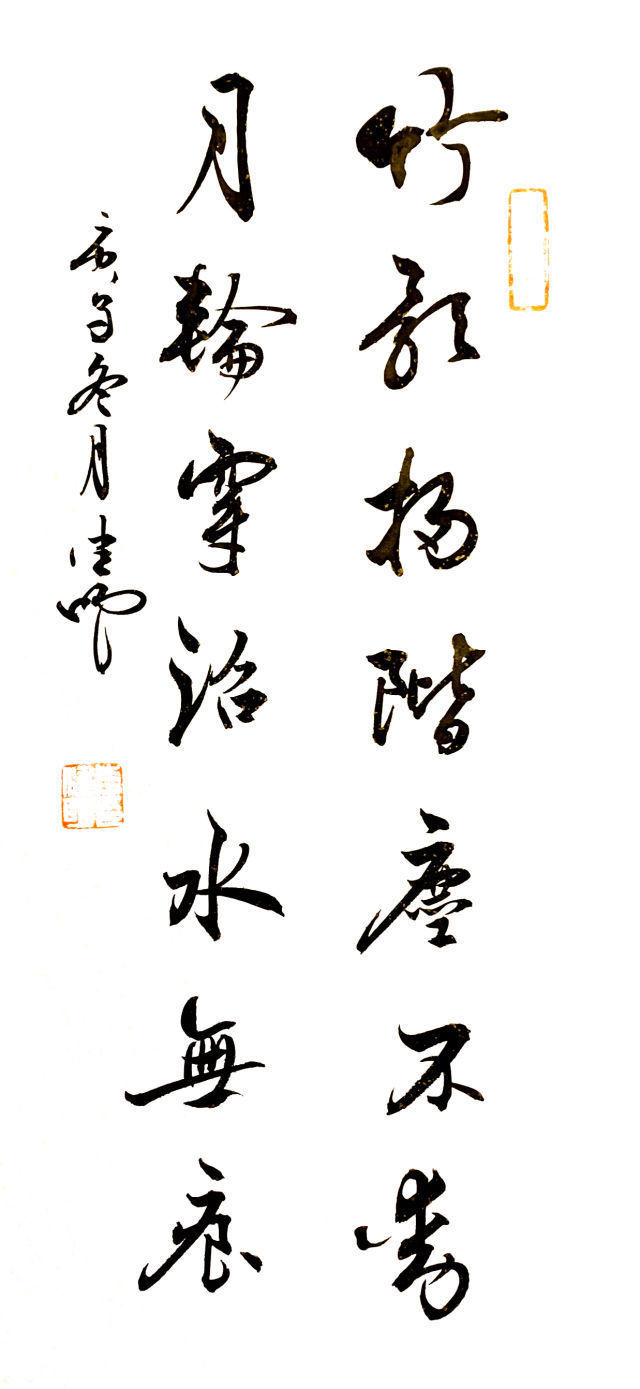 竹影掃階塵不動
月輪穿沼水無痕
冬月